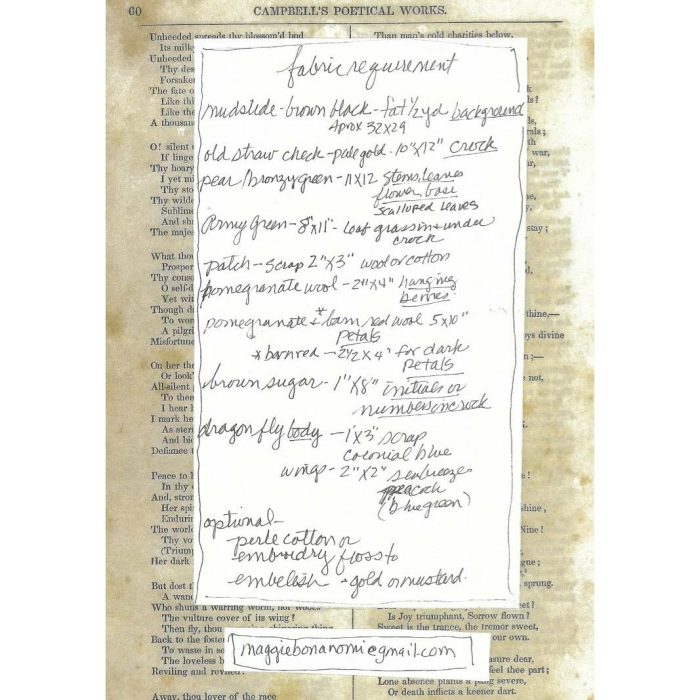 60
CAMPBELL'S POETICAL WORKS.
Unheeded spreads thy blossom'd bud
Its milky
Unheeded
Thy des
Forsaken
The fate o
Like thi
Like the
A thousan
O! silent s
If linge
Thy hoary
I yet mi
Thy wilde
Sublime
And sha
The majes
What thou
Prosper
Thy conse
O self-d
Yet wit
Though da
To wor
A pilgri
Misfortun
On her the
Or look'
All-silent
To thee
I hear
I mark he
As stern
And bic
Defiance t
Peace to h
In thy
And, stron
Her spi
Endurin
The world
Thy yo
(Triump
Her dark
But dost th
A wand
Who shuns a warring world, nor wooes
The vulture cover of its wing!
Then fly, thou
Back to the foster
To waste in so
The loveless b
Reviling and reviled
Away, thou lover of the race
fabric requirement
mudslide - brown black - fat 1/2 yd background
Aprox 32x29
old straw check - pale gold - 10"x12" crock
pear/bronzy green - 11x12 stems, leaves
flower base
scalluped leaves
Army Green - 8"x11" - leaf grassin + under
crock
patch - scrap 2"x3" wool or cotton
pomegranate wool - 2"x4" hanging
berries
pomegranate + * barn red wool 5x10"
petals
* barnred - 2 1/2 x 4" for dark
petals
brown sugar - 1"x8" initials or
numbers in crock
dragonfly body - 1"x3" scrap
colonial blue
wings - 2"x2" seabreeze
peacock
(bluegreen)
optional -
perle cotton or
embroidry floss to
embelish - gold or mustard.
maggiebonanomi@gmail.com
Than man's cold charities below.
war,
stay;
thine,—
oys divine
n;—
not,
shine,
Nine!
gue;
sprung.
eet!
Is Joy triumphant, Sorrow flown?
Sweet is the trance, the tremor sweet,
our own.
asure dear,
feel thee part;
Lone absence plants a pang severe,
Or death inflicts a keener dart.